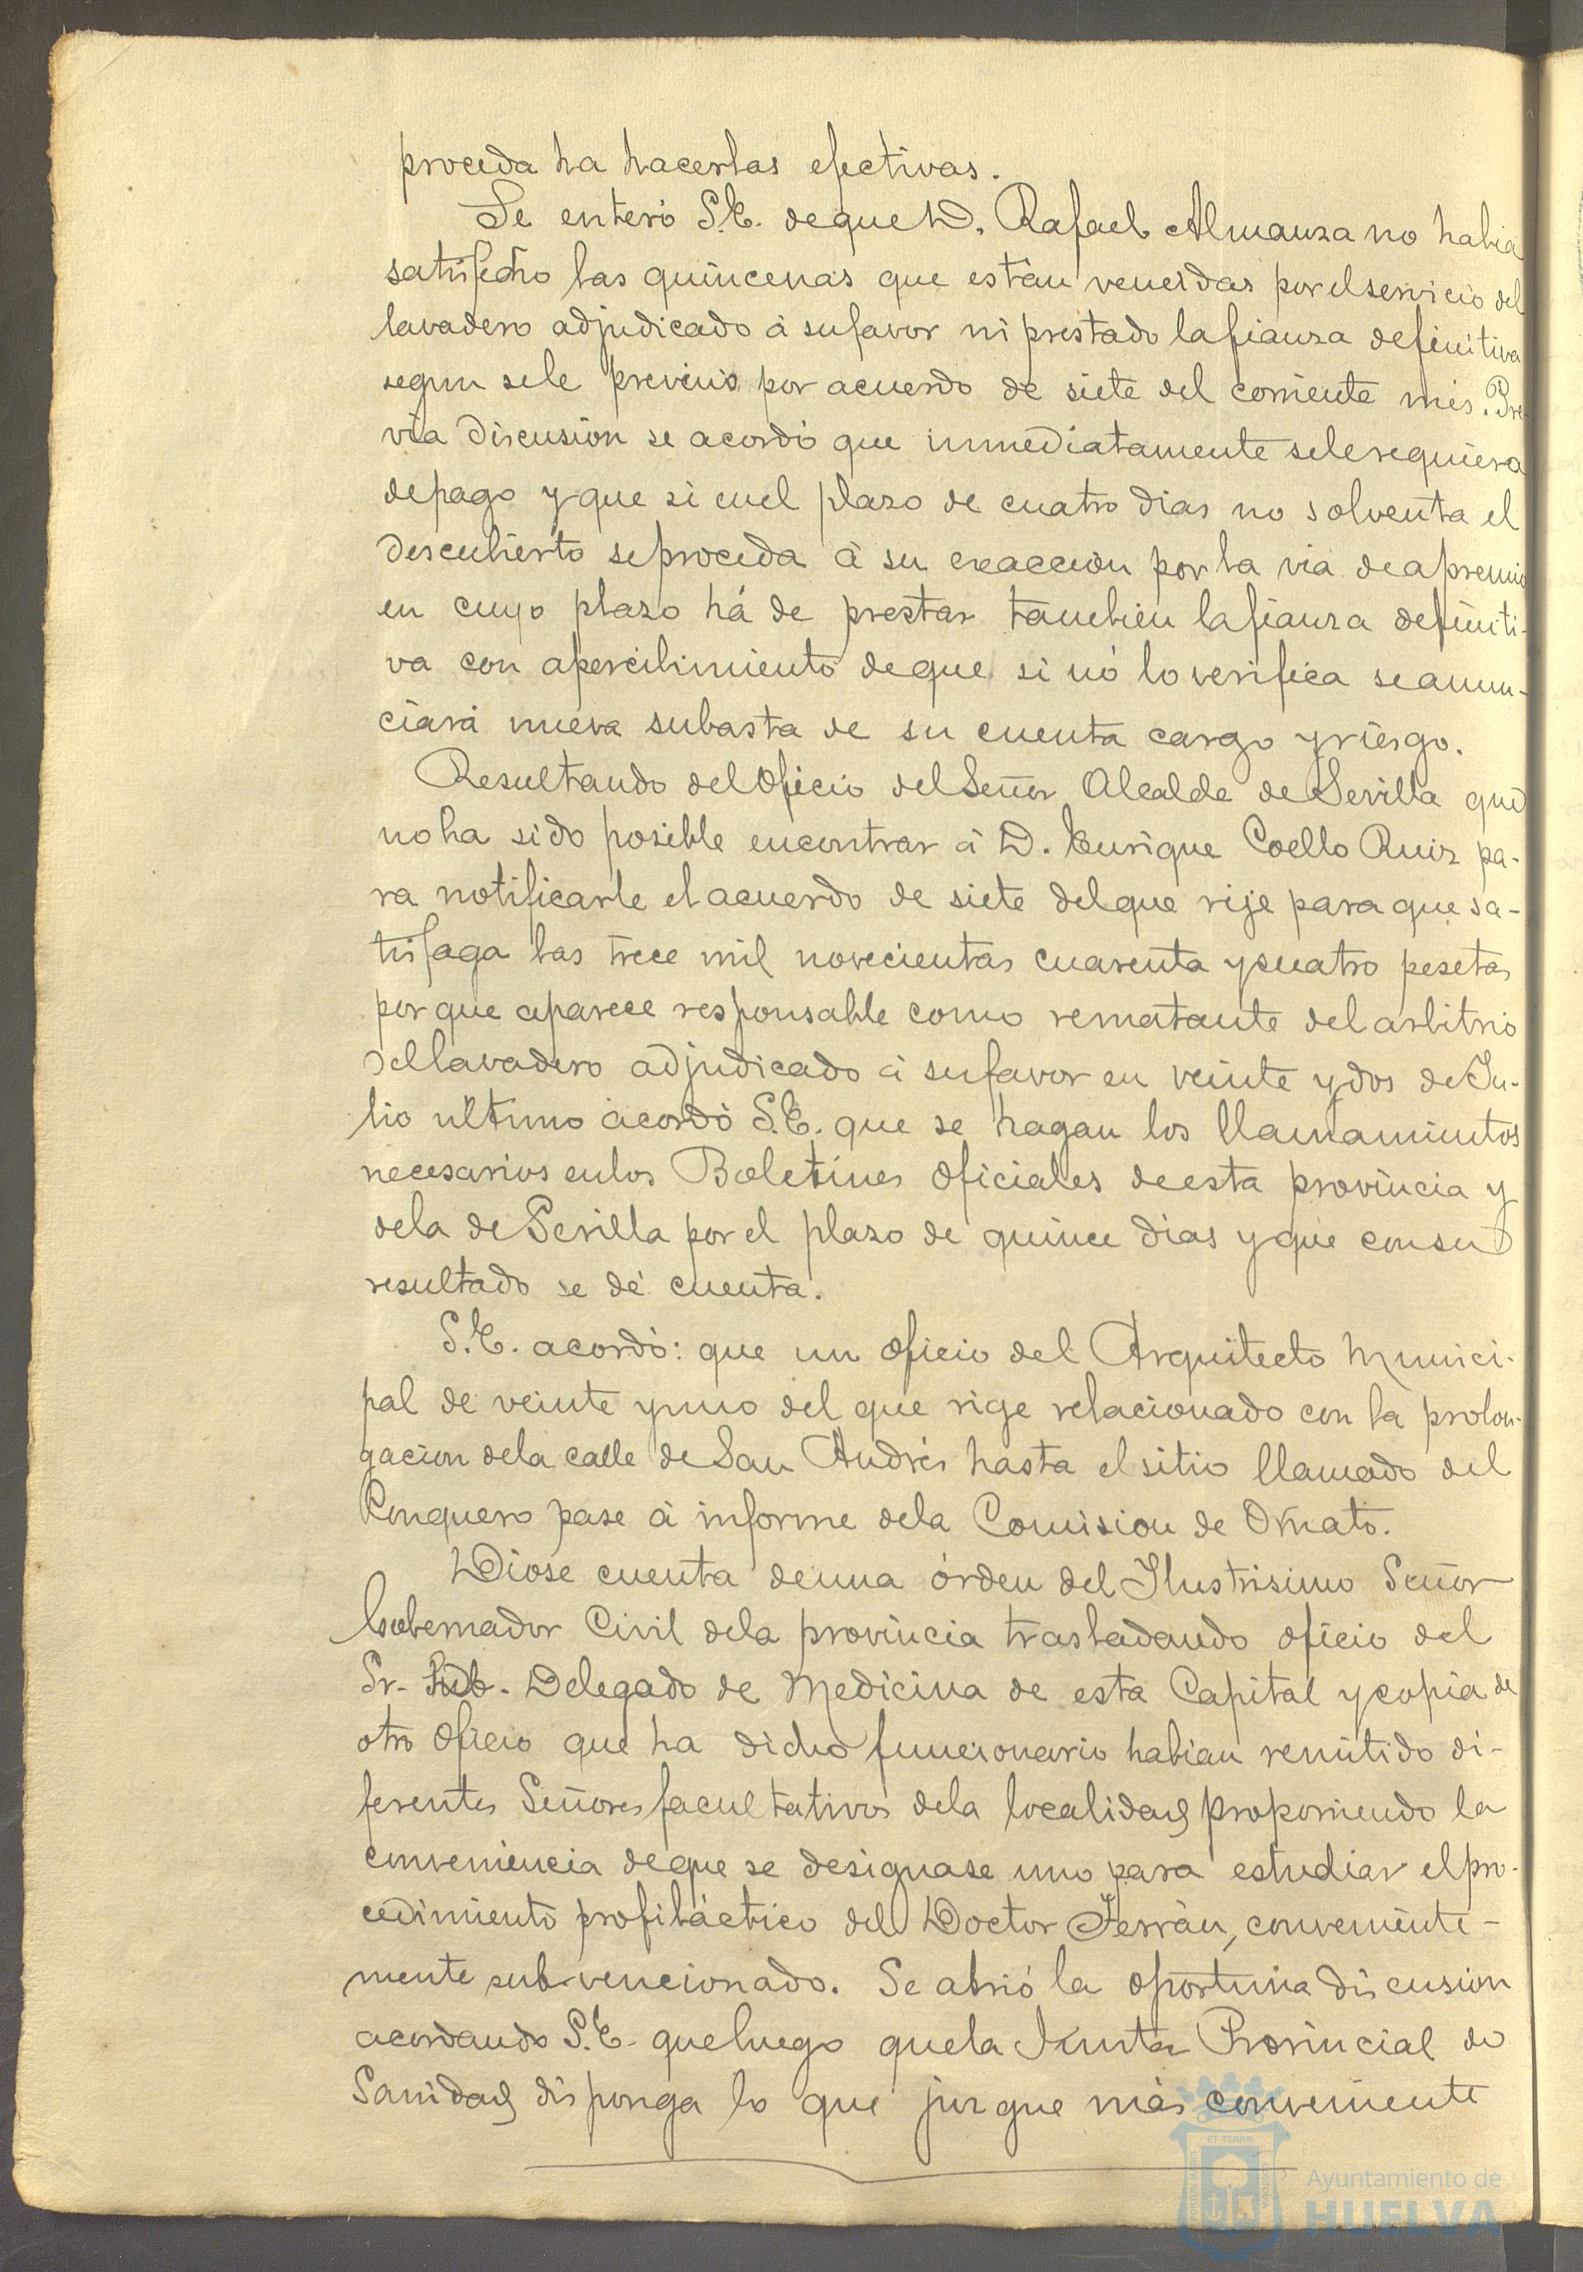 proceda ha hacerlas efectivas.
Se enteró S.E. de que D. Rafael Almansa no habia
satisfecho las quincenas que están vencidas por el servicio del
lavadero adjudicado á su favor ni prestado la fianza definitiva
segun se le previno por acuerdo de siete del corriente mes. Pre-
via discusion se acordó que inmediatamente se le requiera
de pago y que si en el plazo de cuatro dias no solventa el
descubierto se proceda á su exaccion por la via de apremio
en cuyo plazo há de prestar tambien la fianza definiti-
va con apercibimiento de que si nó lo verifica se anun-
ciará nueva subasta de su cuenta cargo y riesgo.
Resultando del Oficio del Señor Alcalde de Sevilla que
no ha sido posible encontrar á D. Enrique Coello Ruiz pa-
ra notificarle el acuerdo de siete del que rije para que sa-
tisfaga las trece mil novecientas cuarenta y cuatro pesetas
por que aparece responsable como rematante del arbitrio
del lavadero adjudicado á su favor en veinte y dos de Ju-
lio ultimo acordó S.E. que se hagan los llamamientos
necesarios en los Boletines Oficiales de esta provincia y
de la de Sevilla por el plazo de quince dias y que con su
resultado se dé cuenta.
S.E. acordó: que un oficio del Arquitecto Munici-
pal de veinte y uno del que rige relacionado con la prolon-
gacion de la calle de San Andrés hasta el sitio llamado del
Conquero pase á informe de la Comision de Ornato.
Diose cuenta de una órden del Ilustrisimo Señor
Gobernador Civil de la provincia trasladando oficio del
Sr. Sub-Delegado de Medicina de esta Capital y copia de
otro Oficio que ha dicho funcionario habian remitido di-
ferentes Señores facultativos de la localidad proponiendo la
conveniencia de que se designase uno para estudiar el pro-
cedimiento profiláctico del Doctor Ferrán, conveniente-
mente subvencionado. Se abrió la oportuna discusion
acordando S.E. que luego que la Junta Provincial de
Sanidad disponga lo que juzgue más conveniente
ET TERRÆ
Ayuntamiento de
HUELVA